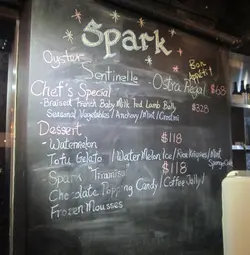 Spark
Oyster
Bon
Appétit!
Sentinelle Ostra Regal $68
Chef's Special $328
- Braised French Baby Milk Fed Lamb Belly
Seasonal Vegetables / Anchovy / Mint / Crostini
Dessert $118
- Watermelon
Tofu Gelato / Watermelon Ice / Rice Krispies / Mint
Sponge Cake
- Spark Tiramisu $118
Chocolate Popping Candy / Coffee Jelly /
Frozen Mousses